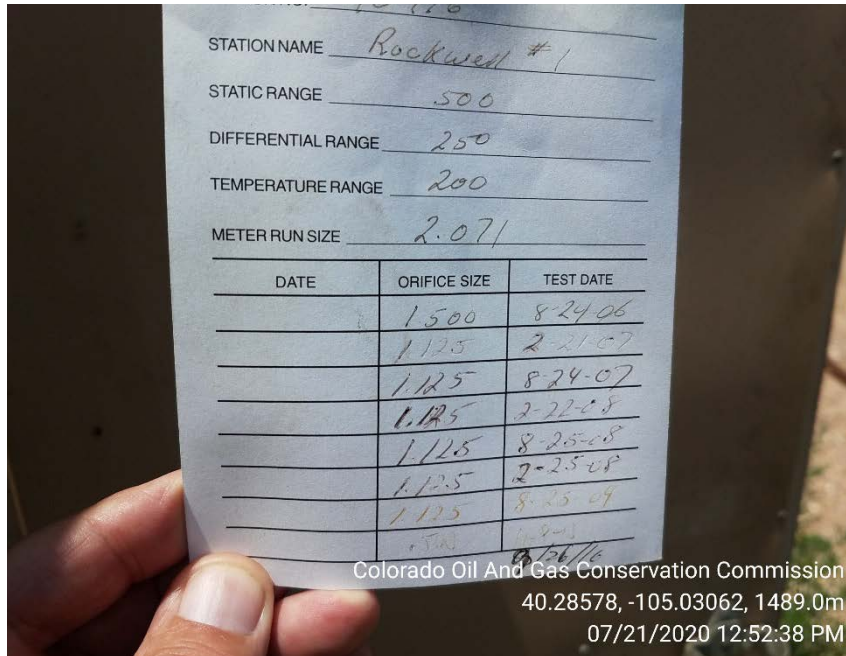 STATION NAME Rockwell #1
STATIC RANGE 500
DIFFERENTIAL RANGE 250
TEMPERATURE RANGE 200
METER RUN SIZE 2.071
DATE ORIFICE SIZE TEST DATE
1.500 8-24-06
1.125 2-21-07
1.125 8-24-07
1.125 2-22-08
1.125 8-25-08
1.125 2-25-08
1.125 8-25-09
Colorado Oil And Gas Conservation Commission
40.28578, -105.03062, 1489.0m
07/21/2020 12:52:38 PM